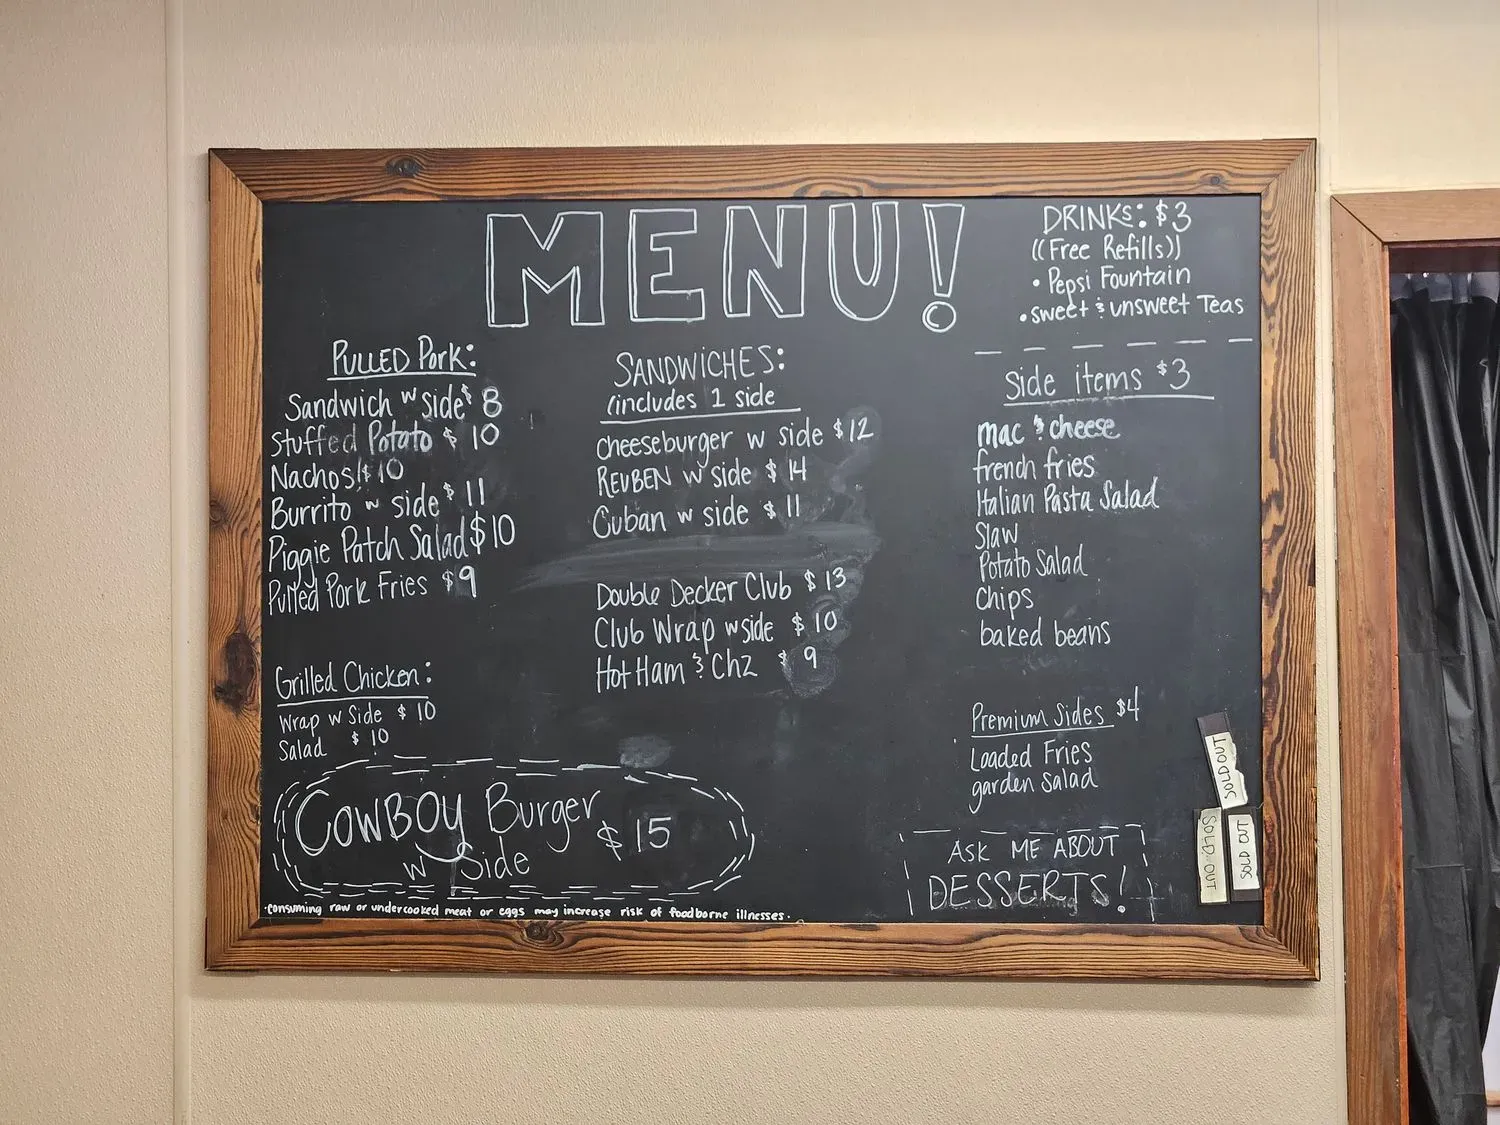 MENU!
DRINKS: $3
((Free Refills))
• Pepsi Fountain
• sweet & unsweet Teas
PULLED Pork:
Sandwich w side $ 8
Stuffed Potato $ 10
Nachos! $ 10
Burrito w side $ 11
Piggie Patch Salad $10
Pulled Pork Fries $9
Grilled Chicken:
Wrap w Side $ 10
Salad $ 10
COWBOY Burger
w Side $ 15
SANDWICHES:
(includes 1 side
cheeseburger w side $12
REUBEN w side $ 14
Cuban w side $ 11
Double Decker Club $ 13
Club Wrap w side $ 10
Hot Ham & Chz $ 9
Side items $3
mac & cheese
french fries
Italian Pasta Salad
Slaw
Potato Salad
Chips
baked beans
Premium Sides $4
Loaded Fries
garden salad
ASK ME ABOUT
DESSERTS!
SOLD OUT
SOLD OUT
SOLD OUT
·consuming raw or undercooked meat or eggs may increase risk of foodborne illnesses.